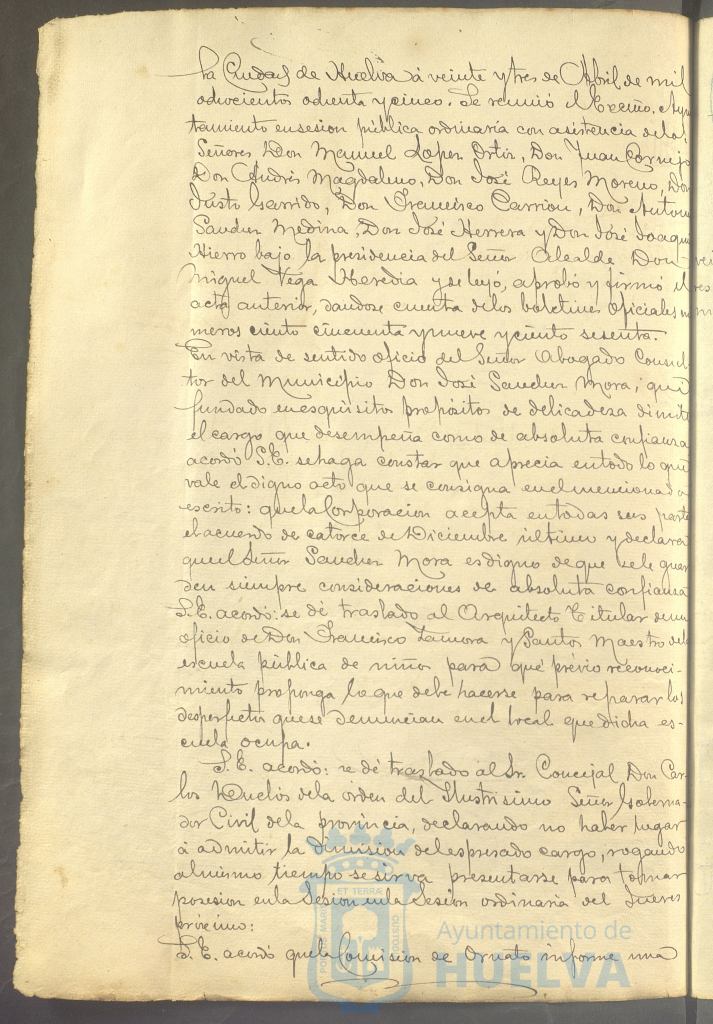 la Ciudad de Huelva á veinte y tres de Abril de mil
ochocientos ochenta y cinco. Se reunió el Excmo. Ayun
tamiento en sesion pública ordinaria con asistencia de los
Señores Don Manuel Lopez Ortiz, Don Juan Cornejo
Don Andrés Magdaleno, Don José Reyes Moreno, Don
Justo Garrido, Don Francisco Carrion, Don Antonio
Sanchez Medina, Don José Herrera y Don José Joaquin
Hierro bajo la presidencia del Señor Alcalde Don
Miguel Vega Heredia y se leyó, aprobó y firmó el
acta anterior, dandose cuenta de los boletines oficiales nú
meros ciento cincuenta y nueve y ciento sesenta.
En vista de sentido oficio del Señor Abogado Consul
tor del Municipio Don José Sanchez Mora, que
fundado en esquisitos propósitos de delicadeza dimite
el cargo que desempeña como de absoluta confianza
acordó S.E. se haga constar que aprecia en todo lo que
vale el digno acto que se consigna en el mencionado
escrito: que la Corporacion acepta en todas sus partes
el acuerdo de catorce de Diciembre último y declara
que el Señor Sanchez Mora es digno de que se le guar
den siempre consideraciones de absoluta confianza
S.E. acordó: se dé traslado al Arquitecto Titular de un
oficio de Don Francisco Zamora y Santos Maestro de la
escuela pública de niños para que prévio reconoci-
miento proponga lo que debe hacerse para reparar los
desperfectos que se denuncian en el local que dicha es-
cuela ocupa.
S.E. acordó: se dé traslado al Sr. Concejal Don Car
los Duclós de la órden del Ilustrisimo Señor Goberna-
dor Civil de la provincia, declarando no haber lugar
á admitir la dimision del espresado cargo, rogando
al mismo tiempo se sirva presentarse para tomar
posesion en la Sesion en la Sesion ordinaria del Jueves
próximo:
S.E. acordó que la Comision de Ornato informe una
ET TERRÆ
PORTUS MARIS
CUSTODIA
Ayuntamiento de
HUELVA